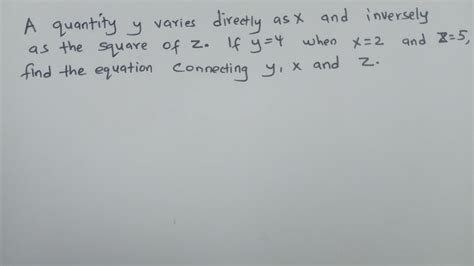 A quantity y varies directly as x and inversely
as the square of z. If y=4 when x=2 and z=5,
find the equation connecting y, x and z.